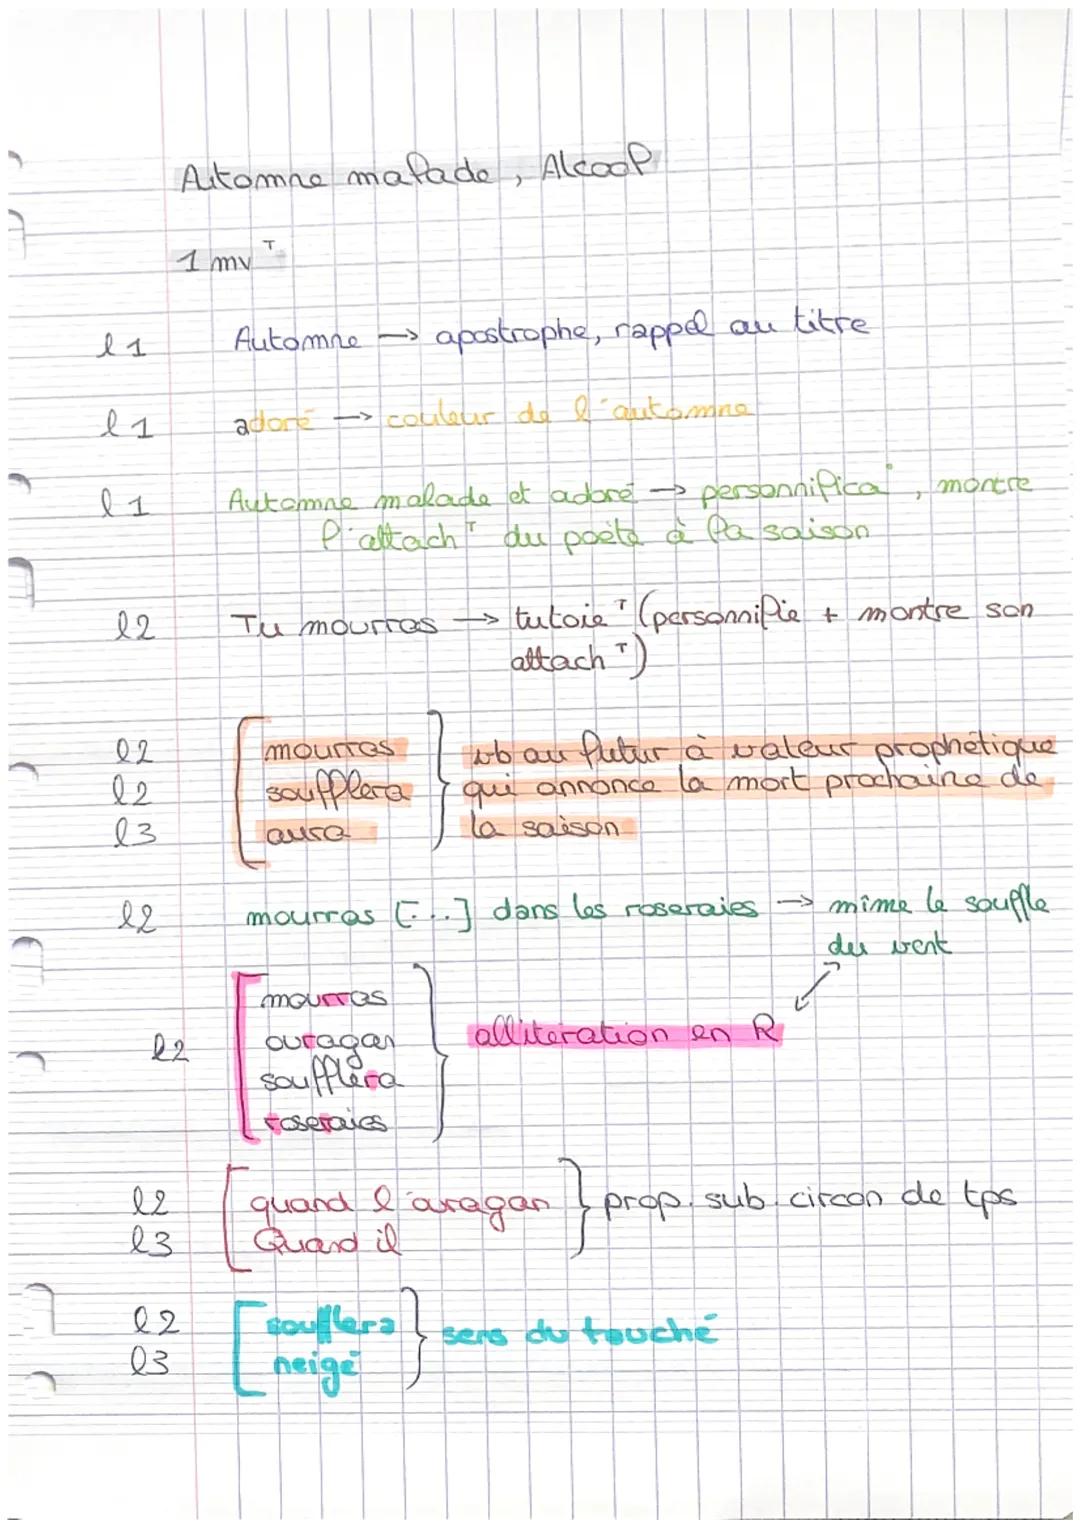 Automne malade, Alcool
1 mv T
l1 Automne → apostrophe, rappel au titre
l1 adoré → couleur de l'automne
l1 Automne malade et adoré → personnifica°, montre
l'attach T du poète à la saison
l2 Tu mourras → tutoie T (personnifie + montre son
attach T)
l2 mourras vb au futur à valeur prophétique
l2 soufflera qui annonce la mort prochaine de
l3 aura la saison
l2 mourras [...] dans les roseraies → mime le souffle
du vent
mourras
l2 ouragan alliteration en R
soufflera
roseraies
l2 quand l'ouragan prop. sub. circon de tps
l3 Quand il
l2 soufflera sens du touché
l3 neigé